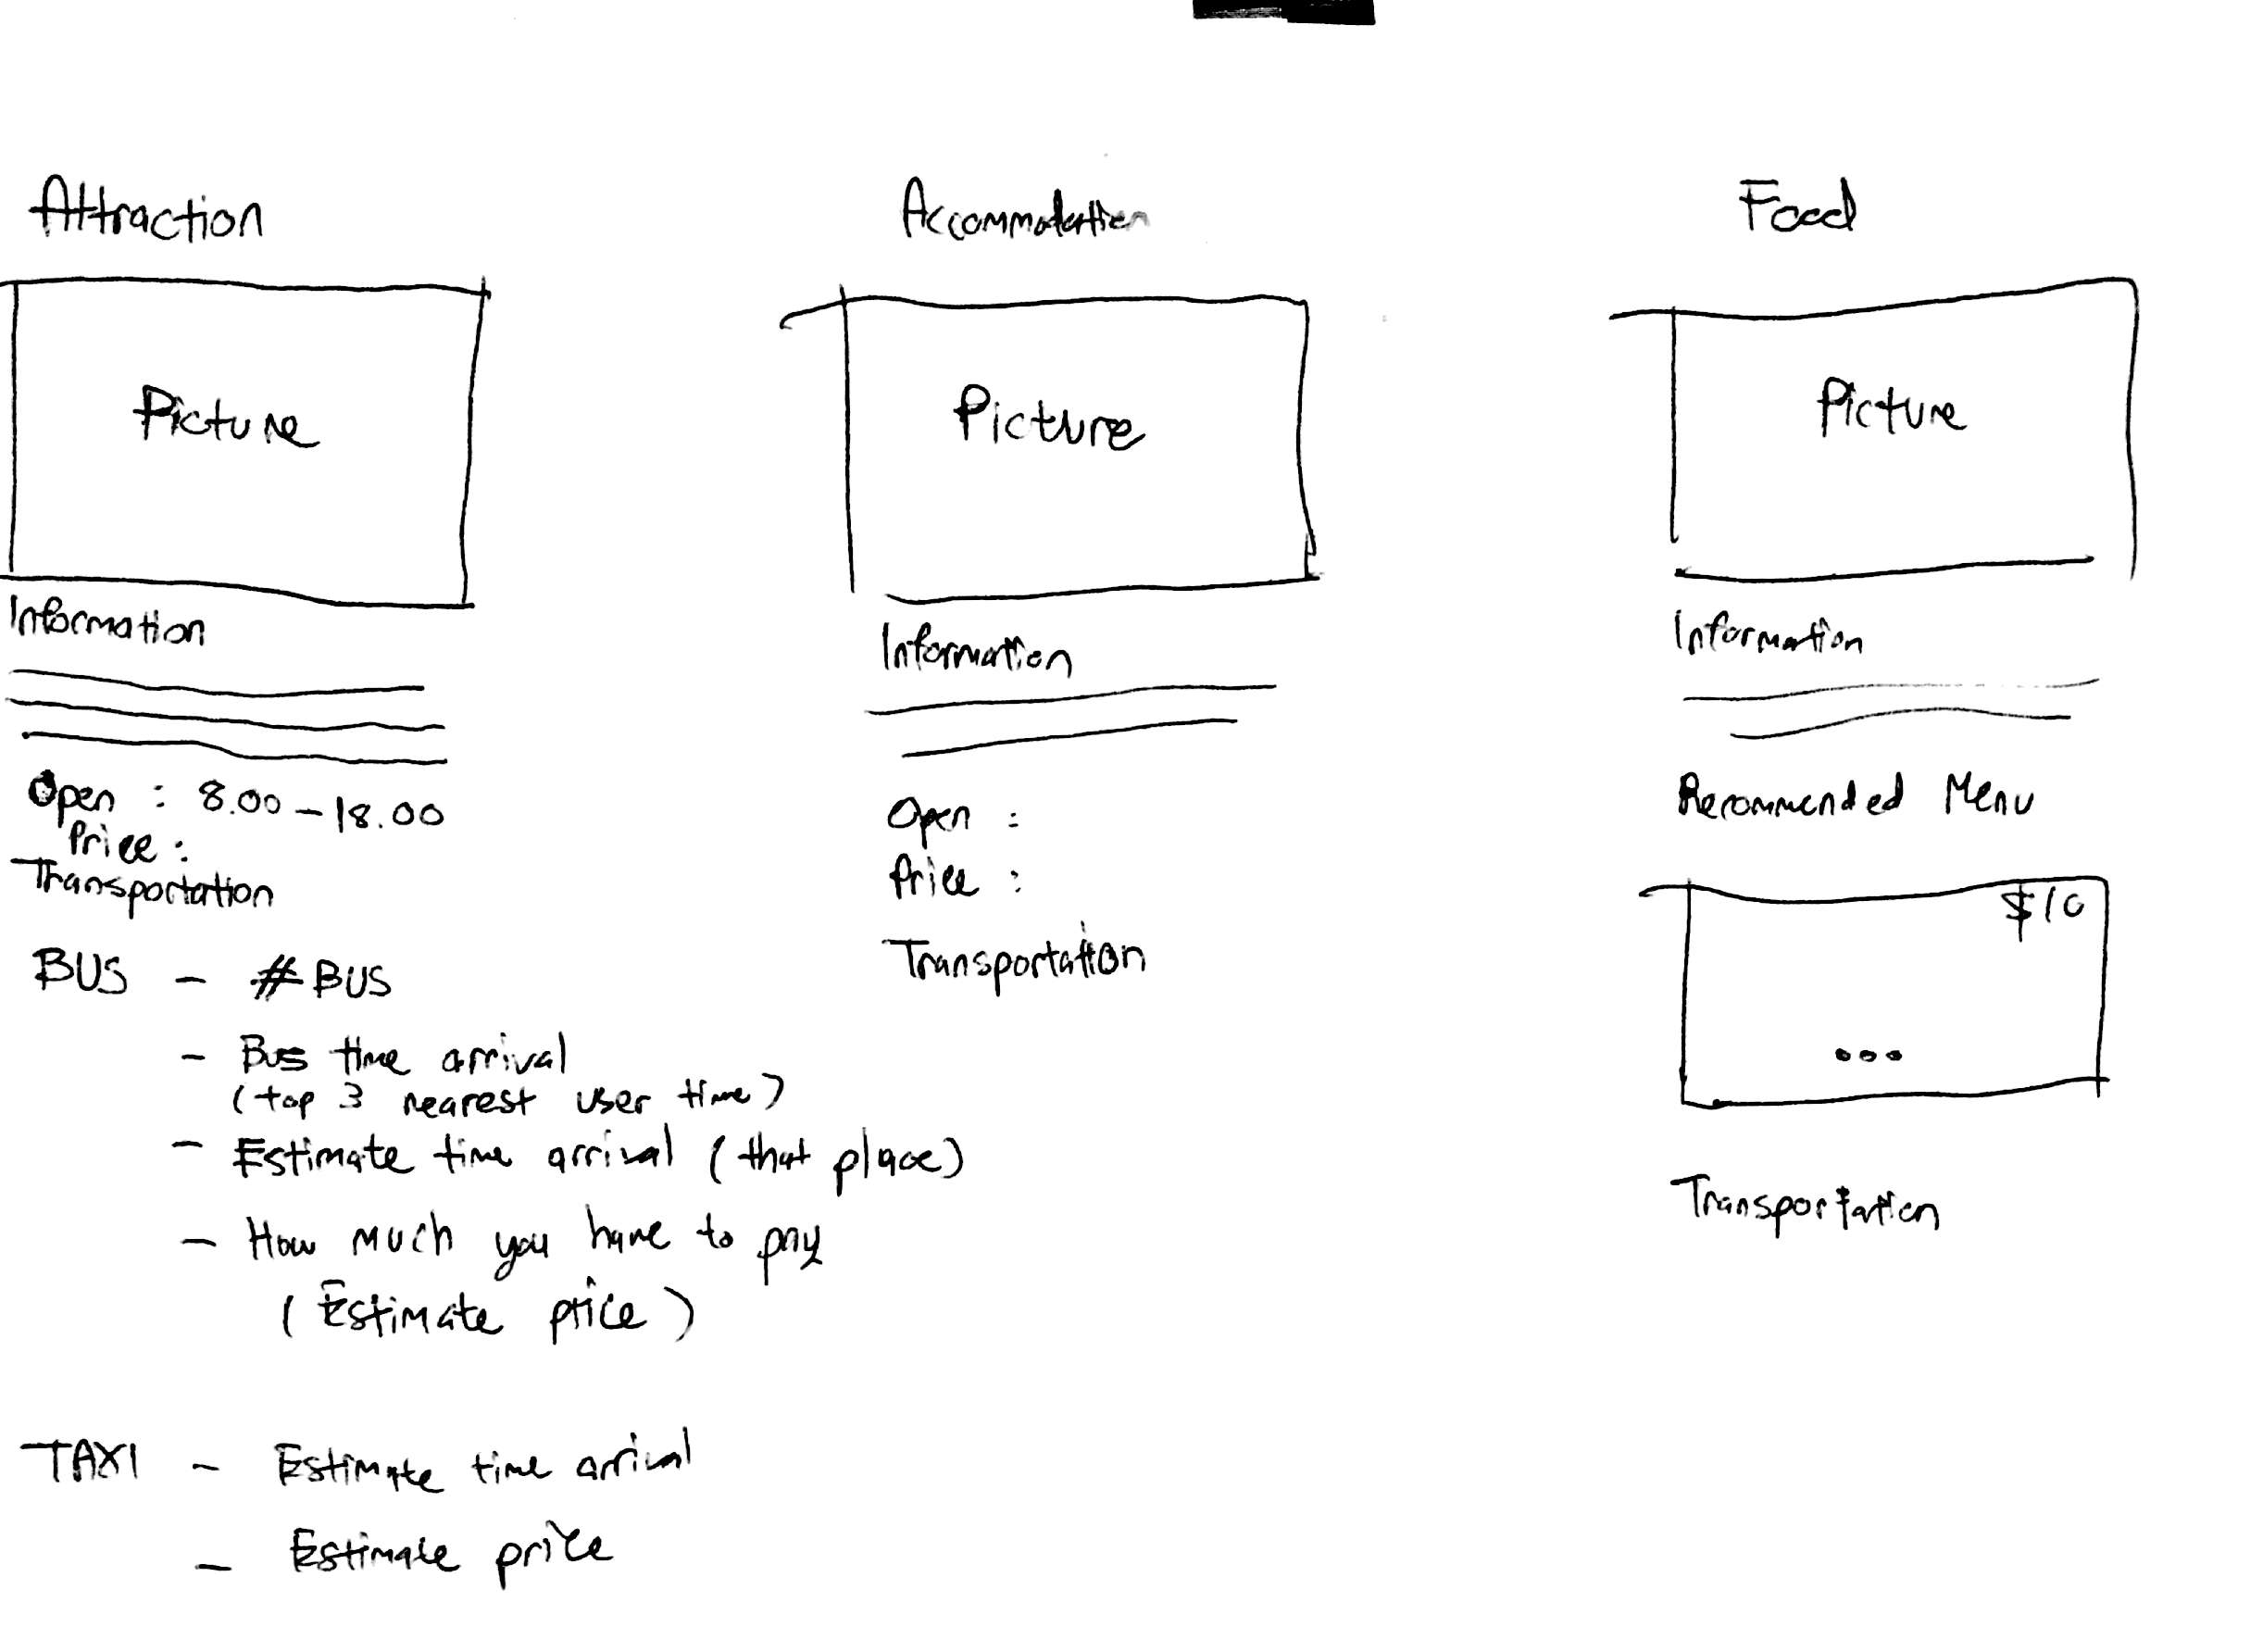 Attraction
Picture
Information
Open : 8.00 - 18.00
Price :
Transportation
BUS - # BUS
- Bus time arrival
(top 3 nearest user time)
- Estimate time arrival (that place)
- How much you have to pay
(Estimate price)
TAXI - Estimate time arrival
- Estimate price
Accommodation
Picture
Information
Open :
Price :
Transportation
Food
Picture
Information
Recommended Menu
$10
...
Transportation